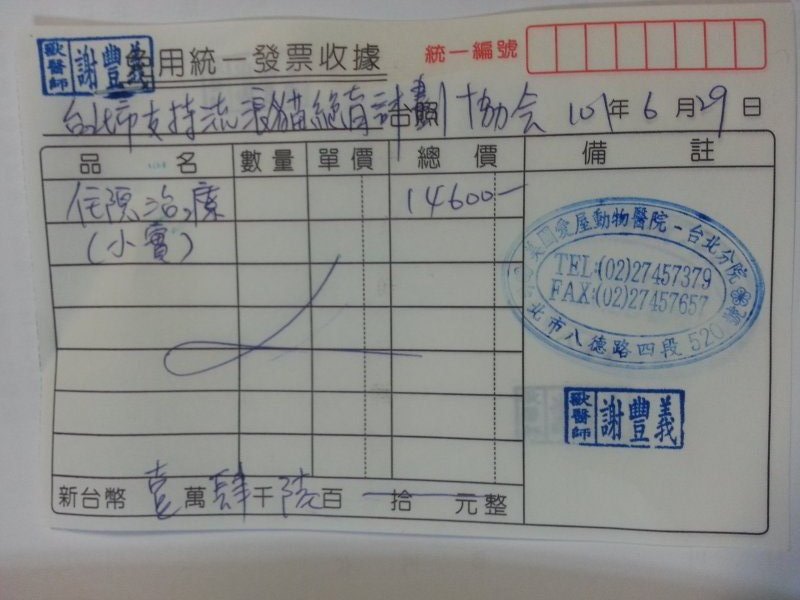 獸醫師 謝豐義
用統一發票收據
統一編號
台北市支持流浪貓絕育計劃協会 台照 101年6月29日
品名 數量 單價 總價 備註
住院治療 14600-
(小寶)
愛屋動物醫院-台北分院
TEL:(02)27457379
FAX:(02)27457657
北市八德路四段520
獸醫師 謝豐義
新台幣 壹萬肆千陸百 拾 元整